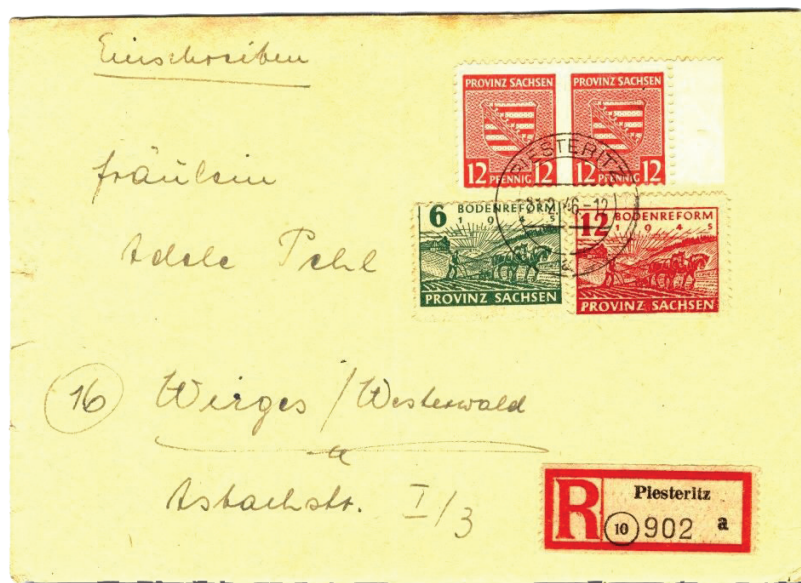 Einschreiben
PROVINZ SACHSEN PROVINZ SACHSEN
12 PFENNIG 12 12 PFENNIG 12
PIESTERITZ
6 BODENREFORM
1945
PROVINZ SACHSEN
12 BODENREFORM
1945
PROVINZ SACHSEN
Fräulein
Adele Pehl
16 Wirges / Westerwald
Asbachstr. I/3
R Piesteritz
10 902 a